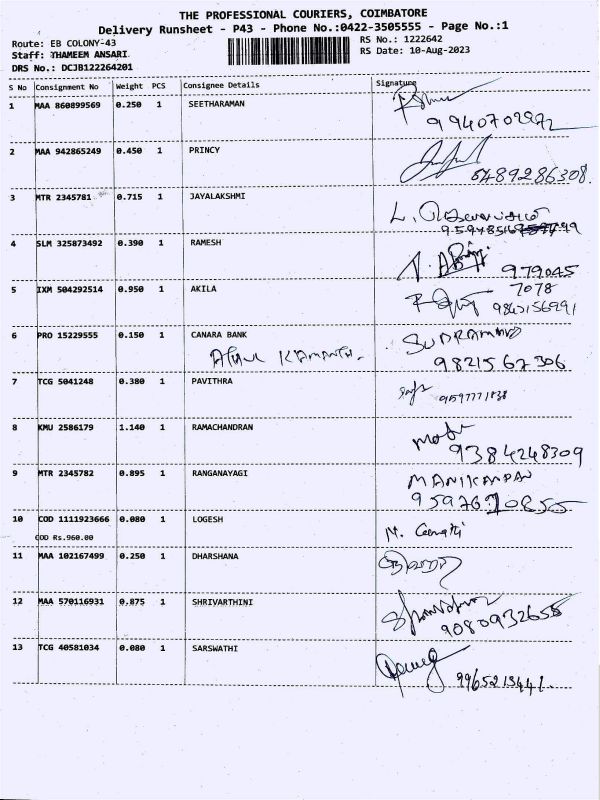 THE PROFESSIONAL COURIERS, COIMBATORE
Delivery Runsheet - P43 - Phone No.:0422-3505555 - Page No.:1
Route: EB COLONY-43 RS No.: 1222642
Staff: THAMEEM ANSARI RS Date: 10-Aug-2023
DRS No.: DCJB122264201
S No Consignment No Weight PCS Consignee Details Signature
1 MAA 860899569 0.250 1 SEETHARAMAN
9940702972
2 MAA 942865249 0.450 1 PRINCY
3 MTR 2345781 0.715 1 JAYALAKSHMI
4 SLM 325873492 0.390 1 RAMESH
979045
7078
5 IXM 504292514 0.950 1 AKILA
9843156991
6 PRO 15229555 0.150 1 CANARA BANK
9821567306
7 TCG 5041248 0.380 1 PAVITHRA
8 KMU 2586179 1.140 1 RAMACHANDRAN
9384248309
9 MTR 2345782 0.895 1 RANGANAYAGI
MANIKANDAN
10 COD 1111923666 0.080 1 LOGESH
COD Rs.960.00
11 MAA 102167499 0.250 1 DHARSHANA
12 MAA 570116931 0.875 1 SHRIVARTHINI
9080932655
13 TCG 40581034 0.080 1 SARSWATHI
9965213441.